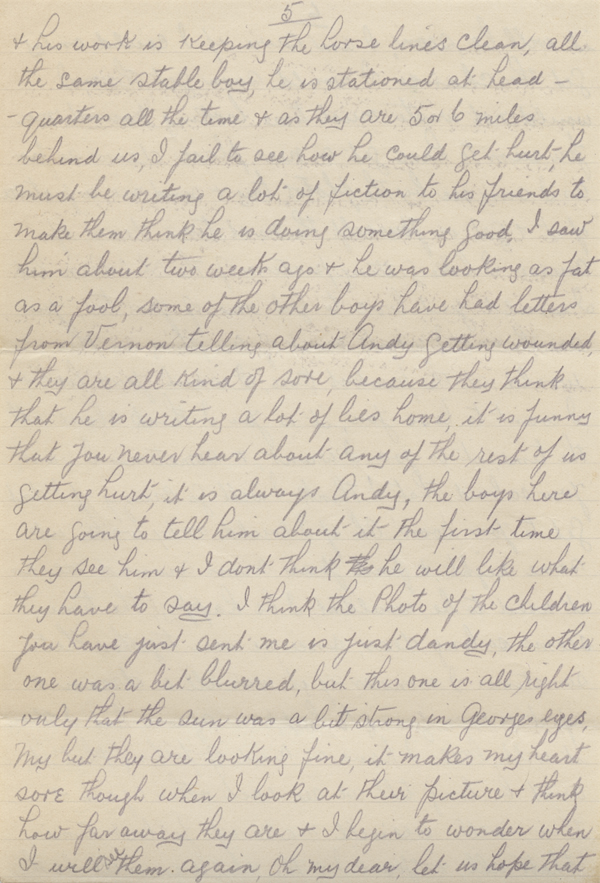 5
& his work is keeping the horse lines clean, all
the same stable boy, he is stationed at head-
-quarters all the time & as they are 5 or 6 miles
behind us, I fail to see how he could get hurt, he
must be writing a lot of fiction to his friends to
make them think he is doing something good, I saw
him about two week ago & he was looking as fat
as a fool, some of the other boys have had letters
from Vernon telling about Andy getting wounded,
& they are all kind of sore, because they think
that he is writing a lot of lies home, it is funny
that you never hear about any of the rest of us
getting hurt, it is always Andy, the boys here
are going to tell him about it the first time
they see him & I dont think he will like what
they have to say. I think the Photo of the children
you have just sent me is just dandy, the other
one was a bit blurred, but this one is all right
only that the sun was a bit strong in Georges eyes,
My but they are looking fine, it makes my heart
sore though when I look at their picture & think
how far away they are & I begin to wonder when
I will see them again, Oh my dear, let us hope that